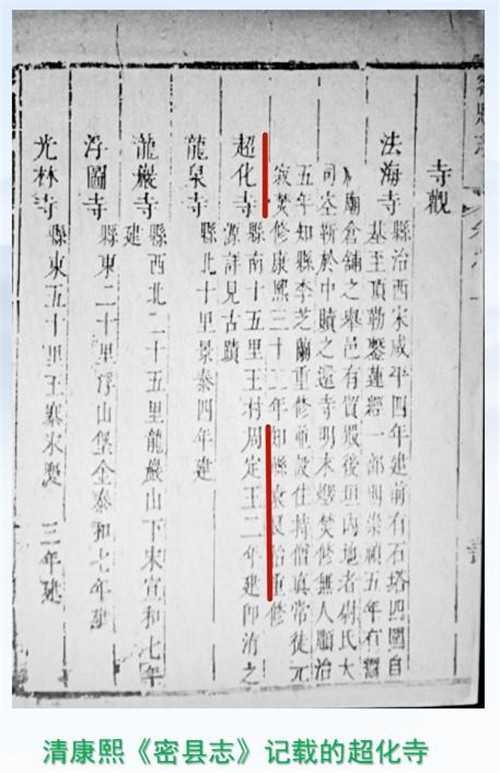 寺觀
法海寺 縣治西宋咸平四年建前有石塔四圍自
基至頂勒鏨蓮經一部明崇禎五年有
廟倉舖之舉邑有質毀後垣內地者尉氏大
司空靳於中贖之還寺明末燬焚修無人順治
五年知縣李芝蘭重修並設住持僧真常徒元
寂焚修康熙三十二年知縣袁良怡重修
超化寺 縣南十五里王村周定王二年建卽洧之
源詳見古蹟
龍泉寺 縣北十里景泰四年建
龍巖寺 縣西北二十五里龍巖山下宋宣和七年
建
浮圖寺 縣東二十里浮山堡金泰和七年建
光林寺 縣東五十里王寨宋慶 三年建
清康熙《密县志》记载的超化寺